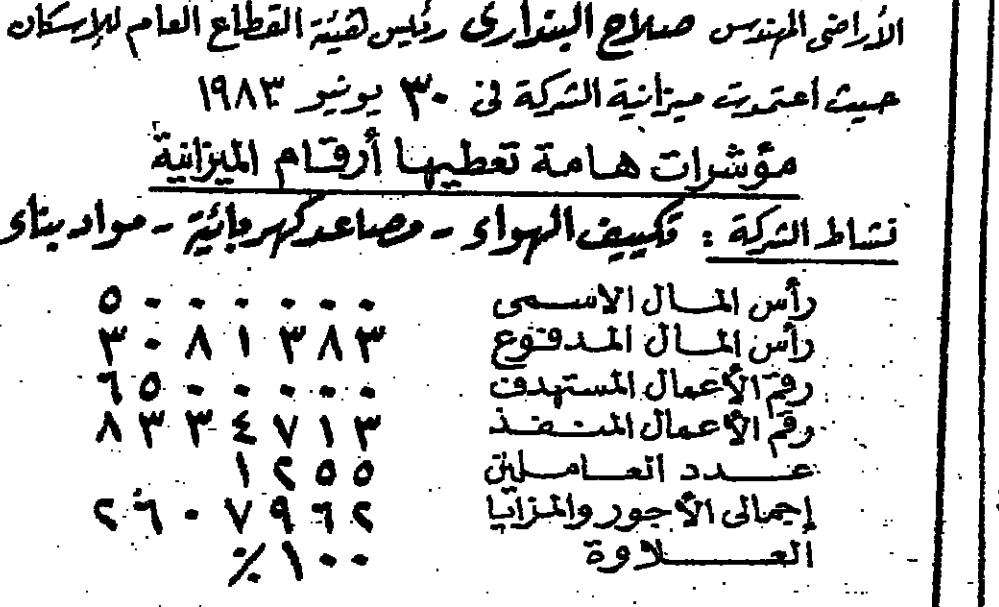 الأراضى المهندس صلاح البندارى رئيس هيئة القطاع العام للإسكان
حيث اعتمدت ميزانية الشركة فى ٣٠ يونيو ١٩٨٣
مؤشرات هامة تعطيها أرقام الميزانية
نشاط الشركة : تكييف الهواء - مصاعد كهربائية - مواد بناء
رأس المال الاسمى ٥٠٠٠٠٠٠
رأس المال المدفوع ٣٠٨١٣٨٣
رقم الأعمال المستهدف ٦٥٠٠٠٠٠
رقم الأعمال المنفذ ٨٣٣٤٧١٣
عدد العاملين ١٢٥٥
إجمالى الأجور والمزايا ٢٦٠٧٩٦٢
العلاوة ١٠٠٪